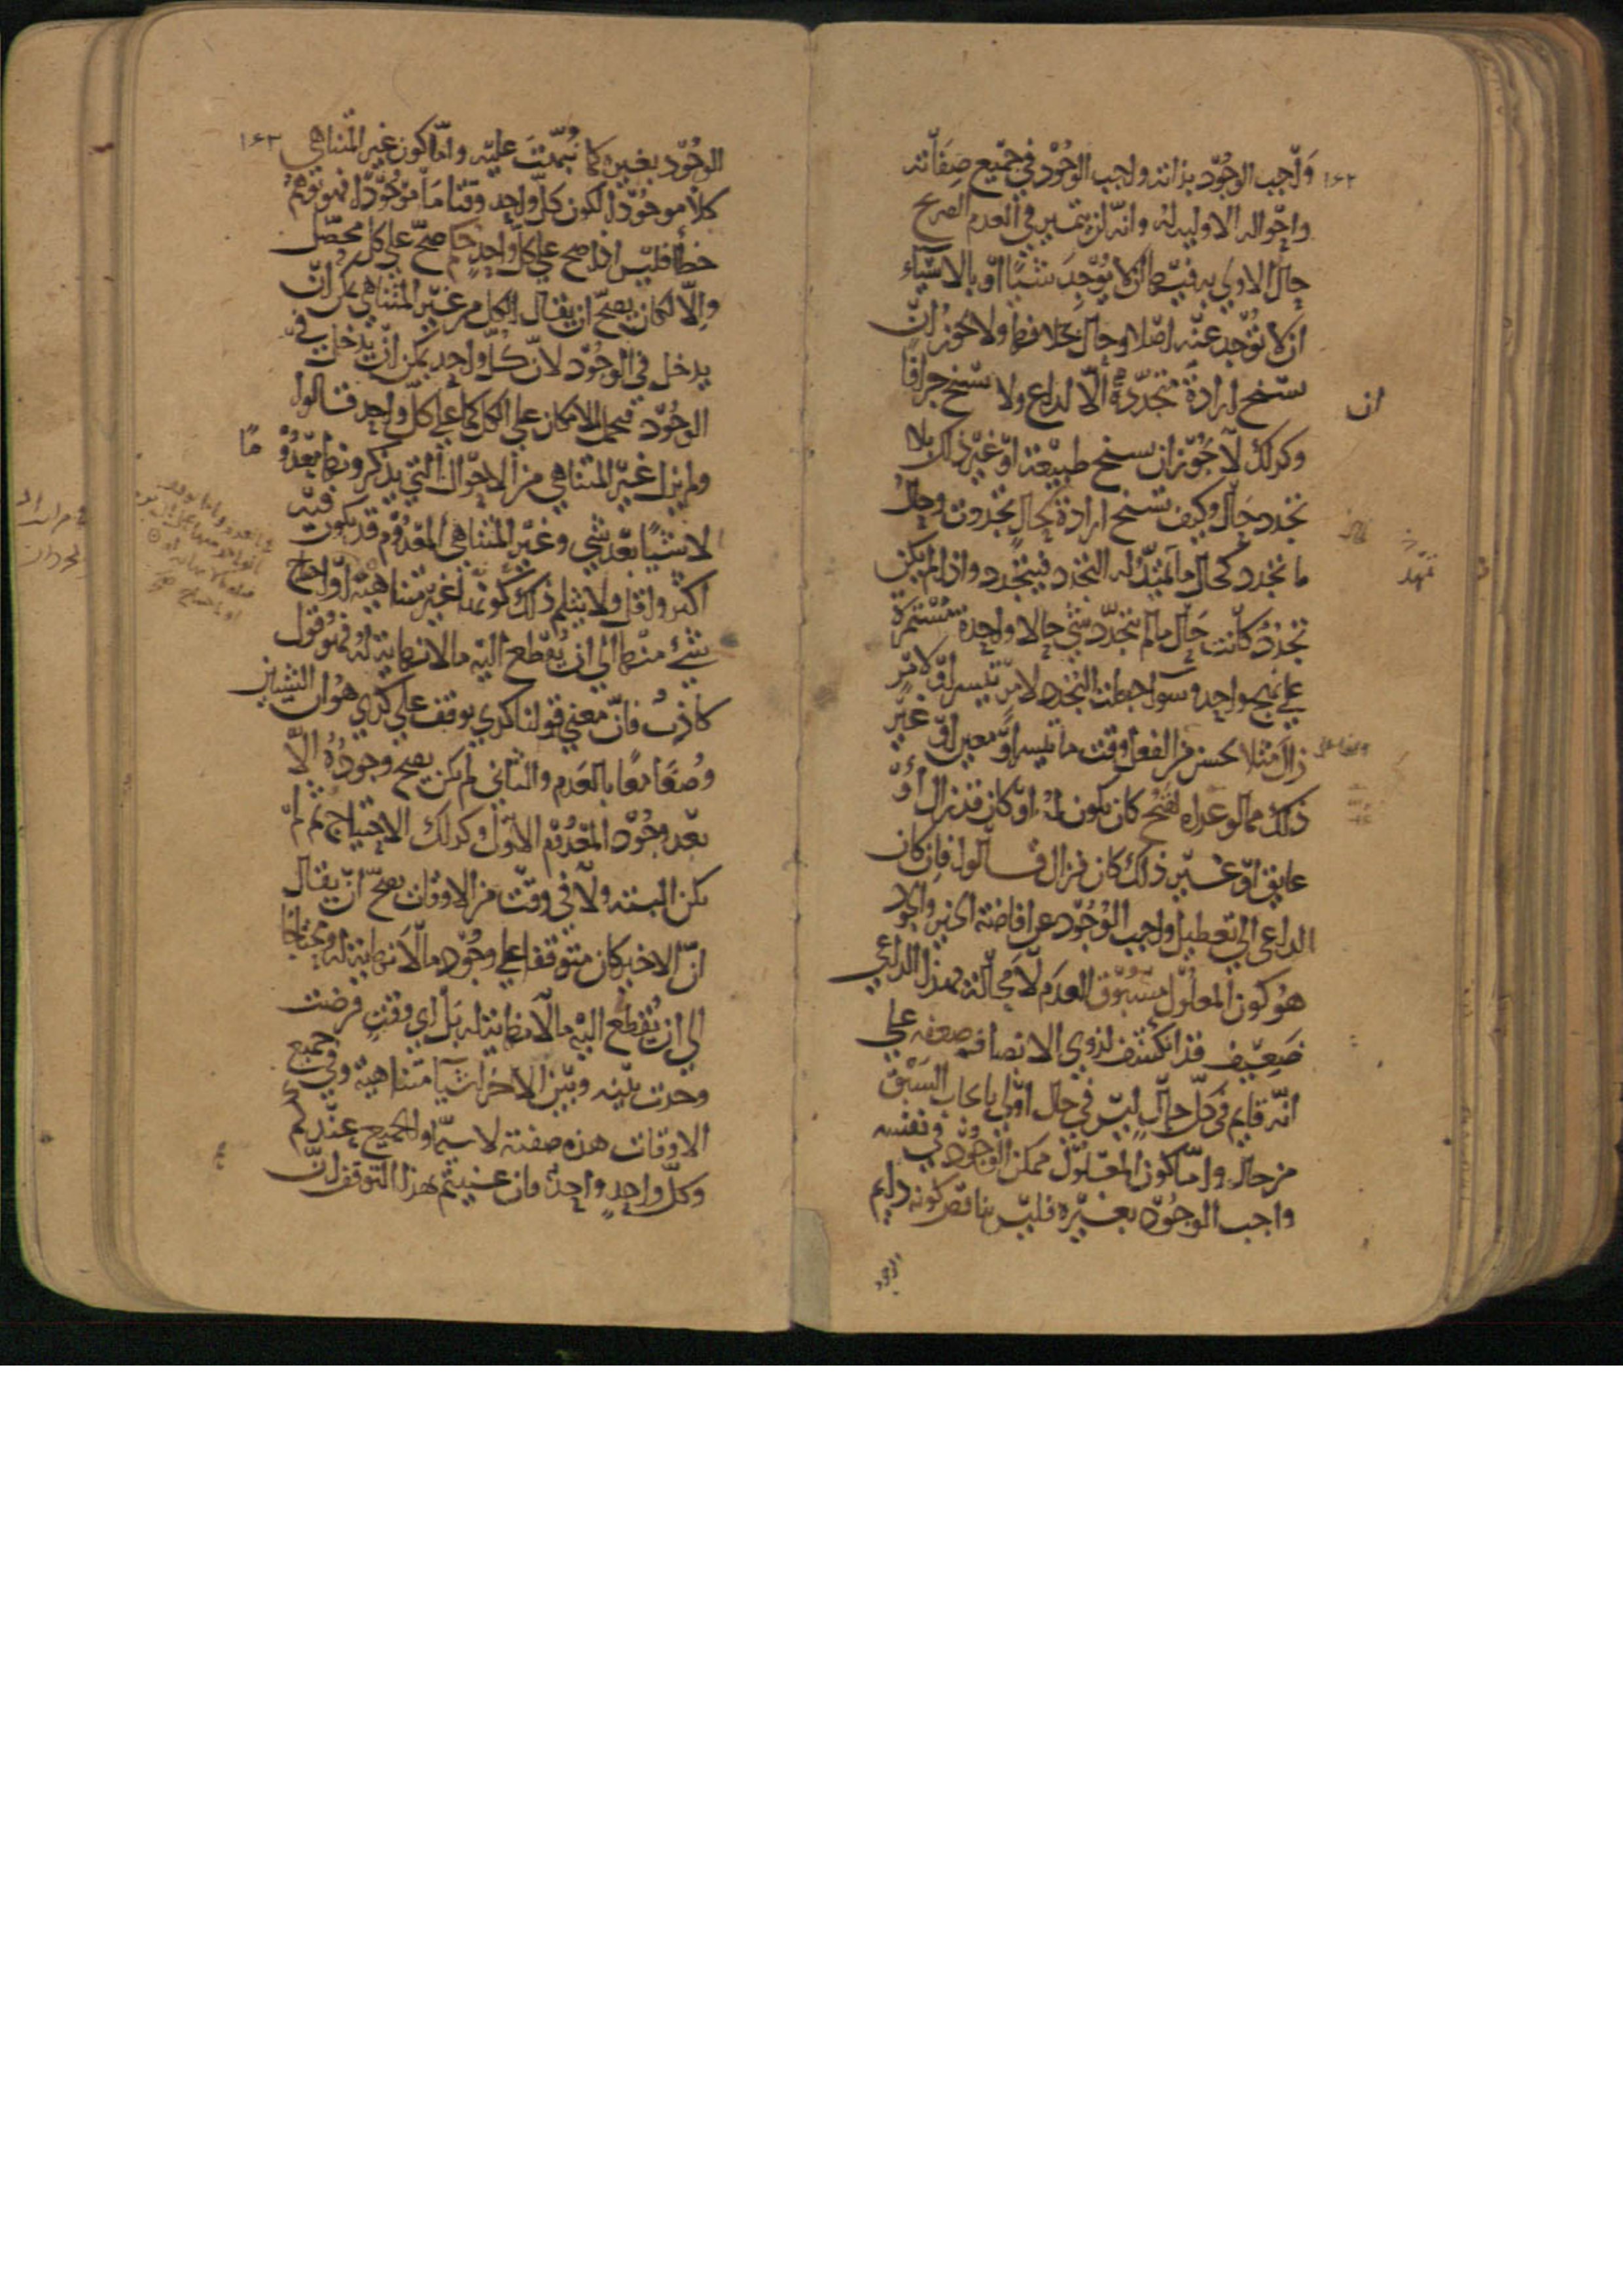 ١٦٢
واجب الوجود بذاته واجب الوجود في جميع صفاته
واحواله الاولية له وانه لن يتميز في العدم الصريح
حال الاولي به فيها ان لا يوجد شيئا او بالاشياء
ان لا توجد عنه اصلا وحال بخلافها ولا يجوز ان
تسنح ارادة متجددة الا لداع ولا تسنح جزافا
وكذلك لا يجوز ان تسنح طبيعة او غير ذلك بلا
تجدد حال وكيف تسنح ارادة لحال تجددت وحال
ما تجدد كحال ما يمهد له التجدد فيتجدد واذا لم يكن
تجدد كانت حال ما لم يتجدد شي حالا واحدة مستمرة
علي نهج واحد وسوا جعلت التجدد لامر تيسر او لامر
زال مثلا كحسن من الفعل وقت ما تيسر او معين او غير
ذلك مما لو عد او لقبح كان يكون له او كان قد زال او
عايق او غير ذلك كان فزال قالوا فان كان
الداعي الي تعطيل واجب الوجود عن افاضة الخير والجود
هو كون المعلول مسبوق العدم لا محالة فهذا الداعي
ضعيف قد انكشف لذوي الانصاف ضعفه علي
انه قايم في كل حال ليس في حال اولي بايجاب السبق
من حال واما كون المعلول ممكن الوجود في نفسه
واجب الوجود بغيره فليس يناقض كونه دايم
الوجود
ان
تمهد
١٦٣
الوجود بغيره كما نبهت عليه واما كون غير المتناهي
كلا موجودا لكون كل واحد وقتا ما موجودا فهو توهم
خطأ فليس اذا صح علي كل واحد حكم صح علي كل محصل
والا لكان يصح ان يقال الكل من غير المتناهي يمكن ان
يدخل في الوجود لان كل واحد يمكن ان يدخل في
الوجود فيحمل الامكان علي الكل كما علي كل واحد قالوا
ولم يزل غير المتناهي من الاحوال التي يذكرونها معدوما
الا شيئا بعد شي وغير المتناهي المعدوم قد يكون فيه
اكثر واقل ولا يثلم ذلك كونها غير متناهية واما احتاج
شئ منها الي ان يقطع اليه ما لا نهاية له فهو قول
كاذب فان معني قولنا كذي توقف علي كذي هو ان الشيئين
وصفا معا بالعدم والثاني لم يكن يصح وجوده الا
بعد وجود المعدوم الاول وكذلك الاحتياج ثم لم
يكن البتة ولا في وقت من الاوقات يصح ان يقال
ان الاخير كان متوقفا علي وجود ما لا نهاية له او محتاجا
الي ان يقطع اليه ما لا نهاية له بل اي وقت فرضت
وجدت بينه وبين الاخر اشيا متناهية وفي جميع
الاوقات هذه صفته لا سيما والجميع عندكم
وكل واحد واحد فان عنيتم بهذا التوقف ان